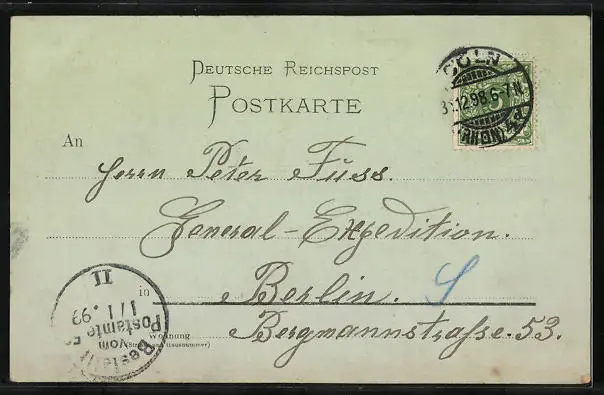 DEUTSCHE REICHSPOST
POSTKARTE
CÖLN
12.98.6-7N.
(RHEIN)
An
Herrn Peter Füss.
General-Expedition.
in Berlin. S
Wohnung
(Strasse und Hausnummer)
Bergmannstraße. 53.
Bestellt
vom
Postamte
1/1.99
II